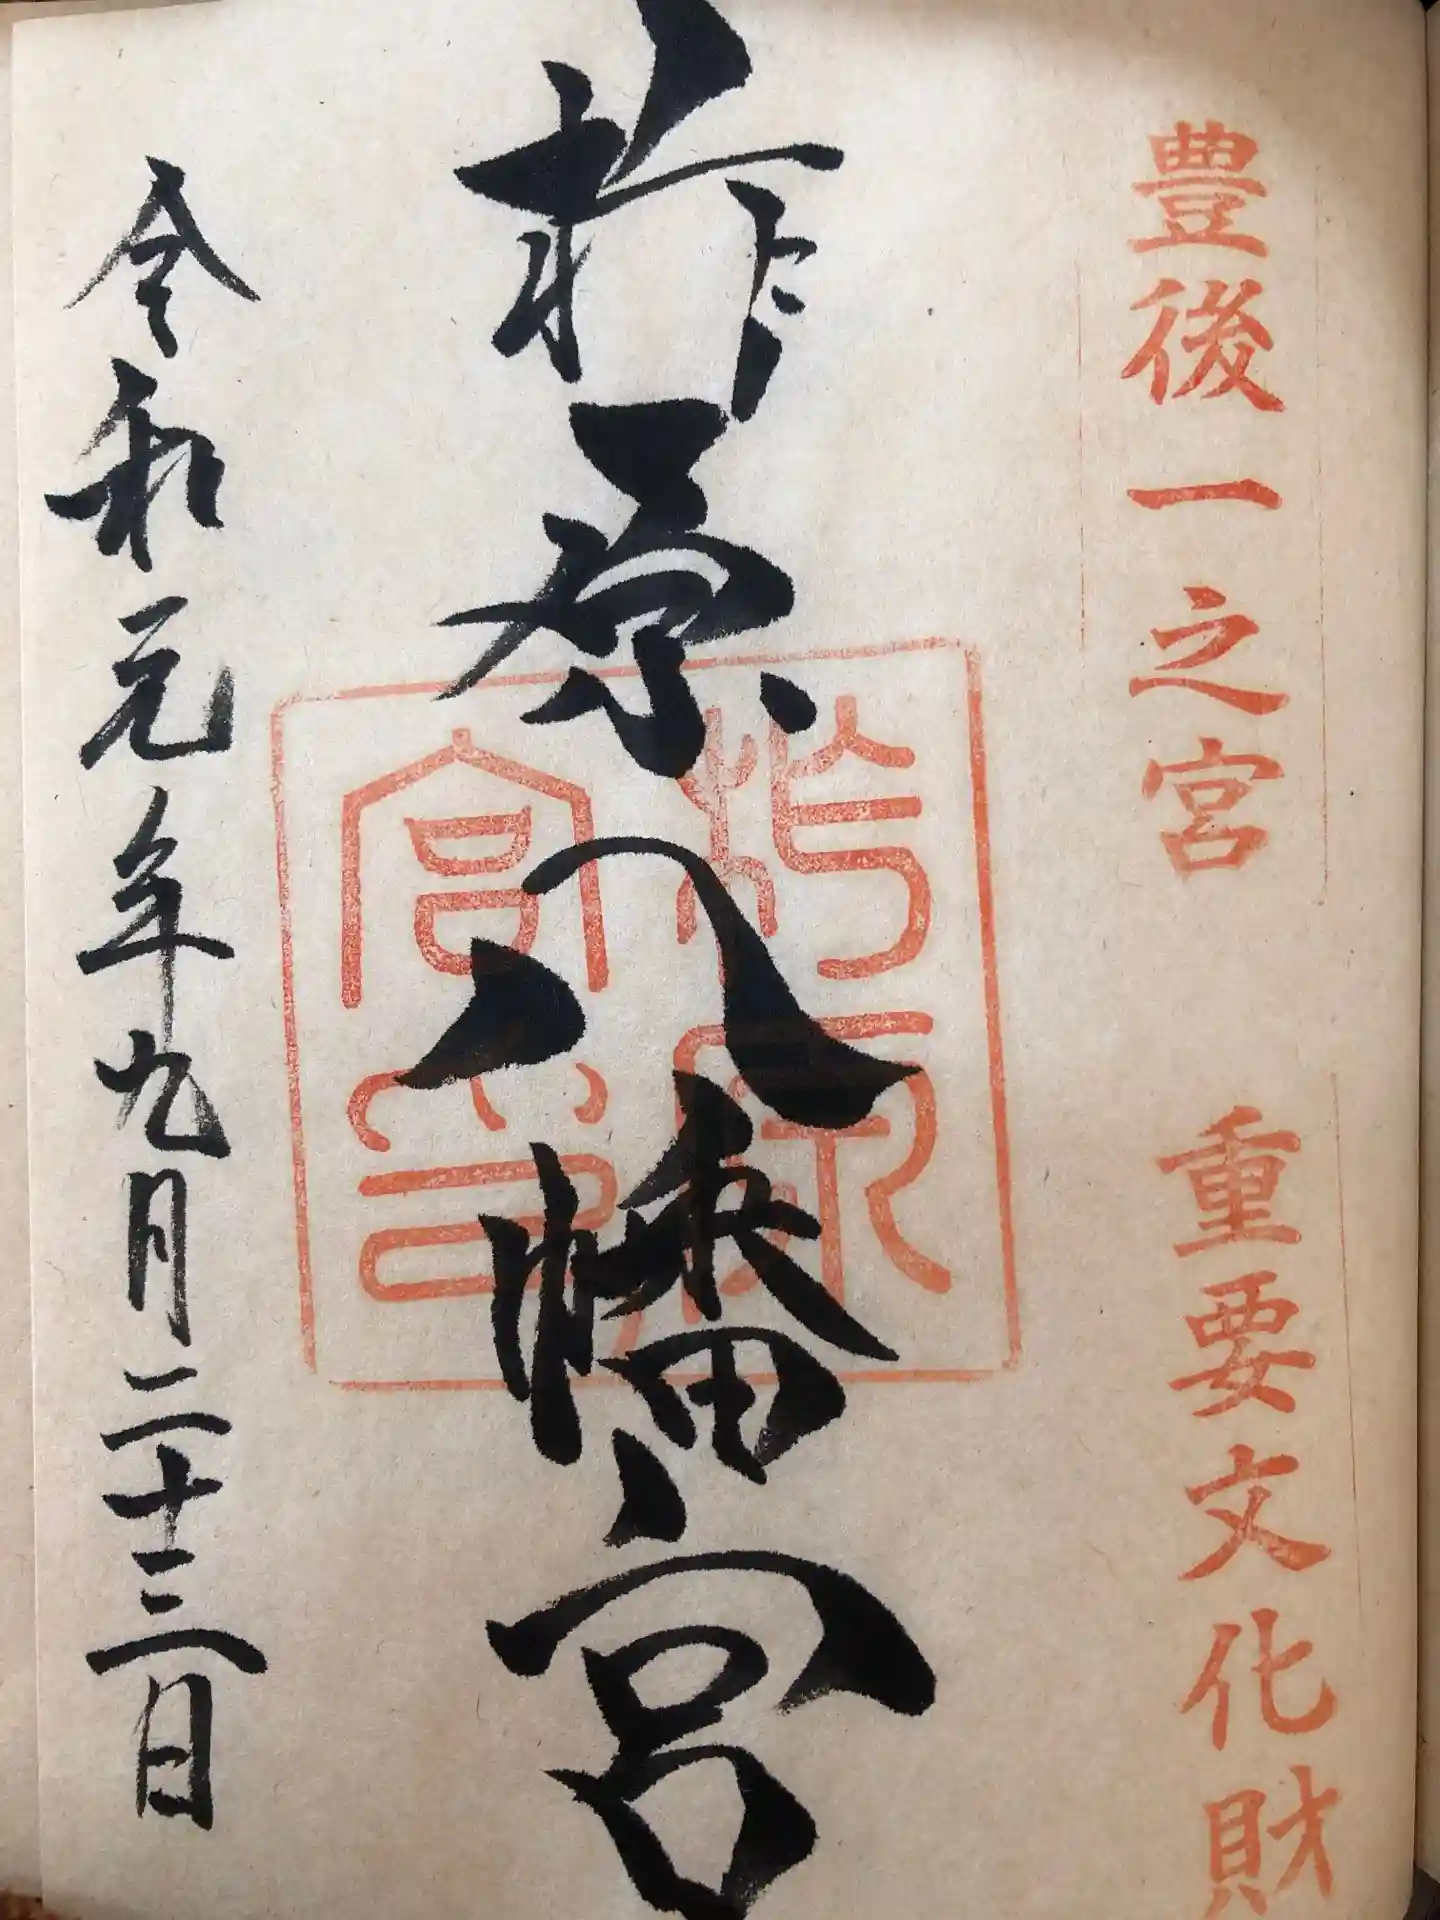 豊後一之宮 重要文化財
柞原八幡宮
令和元年九月二十三日